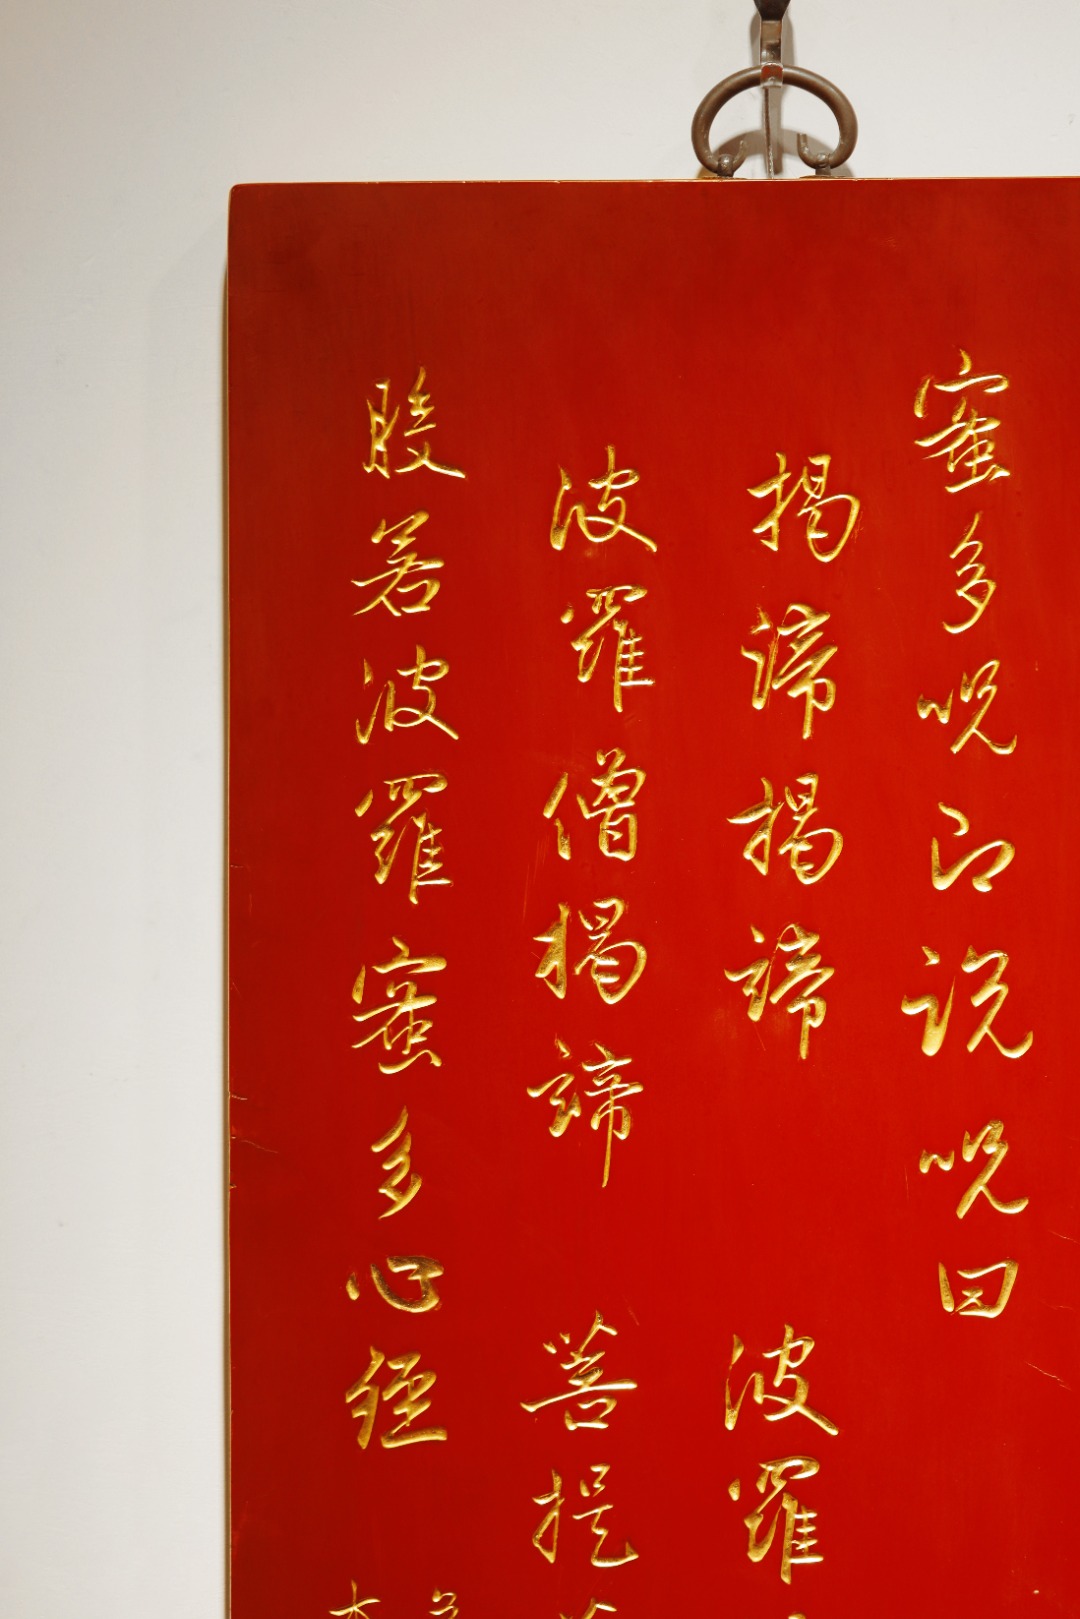 蜜多呪即說呪曰
揭諦揭諦 波羅
波羅僧揭諦 菩提
般若波羅蜜多心經